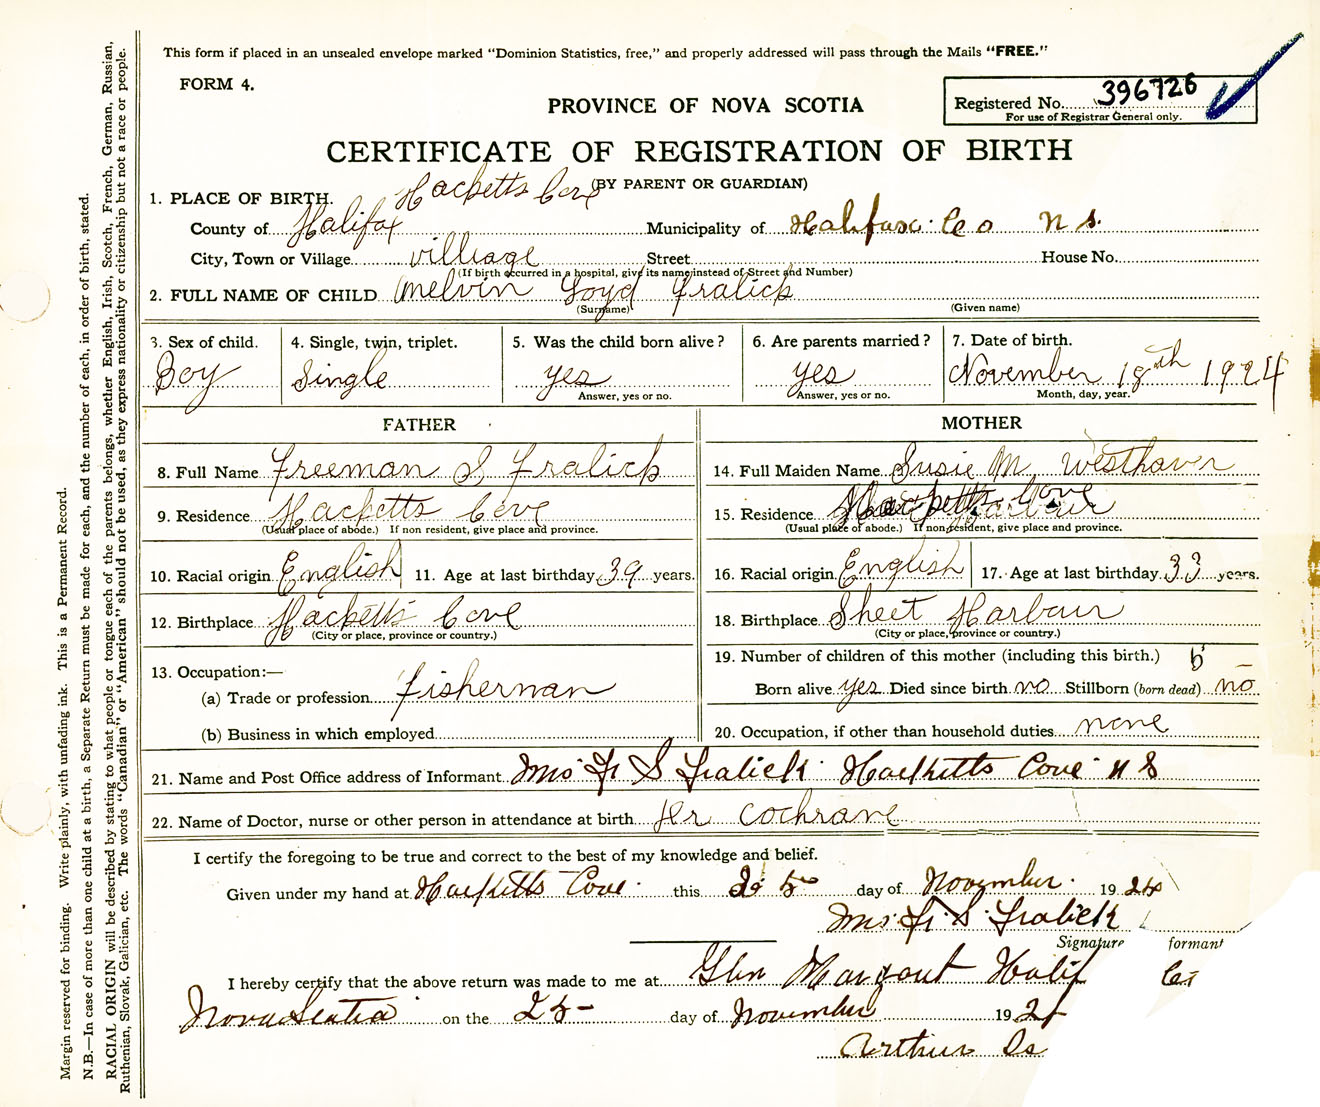 This form if placed in an unsealed envelope marked "Dominion Statistics, free," and properly addressed will pass through the Mails "FREE."
FORM 4.
Registered No. 396726
For use of Registrar General only.
PROVINCE OF NOVA SCOTIA
CERTIFICATE OF REGISTRATION OF BIRTH
(BY PARENT OR GUARDIAN)
1. PLACE OF BIRTH. Hacketts Cove
County of Halifax Municipality of Halifax Co N S.
City, Town or Village villiage Street House No.
(If birth occurred in a hospital, give its name instead of Street and Number)
2. FULL NAME OF CHILD Melvin Loyd Fralick
(Surname) (Given name)
3. Sex of child. 4. Single, twin, triplet. 5. Was the child born alive? 6. Are parents married? 7. Date of birth.
Boy Single yes yes November 18th 1924
Answer, yes or no. Answer, yes or no. Month, day, year.
FATHER MOTHER
8. Full Name Freeman S Fralick 14. Full Maiden Name Susie M Westhaver
9. Residence Hacketts Cove 15. Residence Hacketts Cove
(Usual place of abode.) If non resident, give place and province. (Usual place of abode.) If non resident, give place and province.
10. Racial origin English 11. Age at last birthday 39 years. 16. Racial origin English 17. Age at last birthday 33 years.
12. Birthplace Hacketts Cove 18. Birthplace Sheet Harbour
(City or place, province or country.) (City or place, province or country.)
13. Occupation:— 19. Number of children of this mother (including this birth.)
(a) Trade or profession fisherman Born alive yes Died since birth no Stillborn (born dead) no
(b) Business in which employed 20. Occupation, if other than household duties none
21. Name and Post Office address of Informant Mrs F S Fralick Hacketts Cove N S
22. Name of Doctor, nurse or other person in attendance at birth Dr Cochrane
I certify the foregoing to be true and correct to the best of my knowledge and belief.
Given under my hand at Hacketts Cove this 25 day of November 1924
Mrs. F. S. Fralick
Signature formant
I hereby certify that the above return was made to me at Glen Margaret Halif Co
Nova Scotia on the 25- day of November 192
Arthur
Margin reserved for binding. Write plainly, with unfading ink. This is a Permanent Record.
N.B.—In case of more than one child at a birth, a Separate Return must be made for each, and the number of each, in order of birth, stated.
RACIAL ORIGIN will be described by stating to what people or tongue each of the parents belongs, whether English, Irish, Scotch, French, German, Russian,
Ruthenian, Slovak, Galician, etc. The words "Canadian" or "American" should not be used, as they express nationality or citizenship but not a race or people.